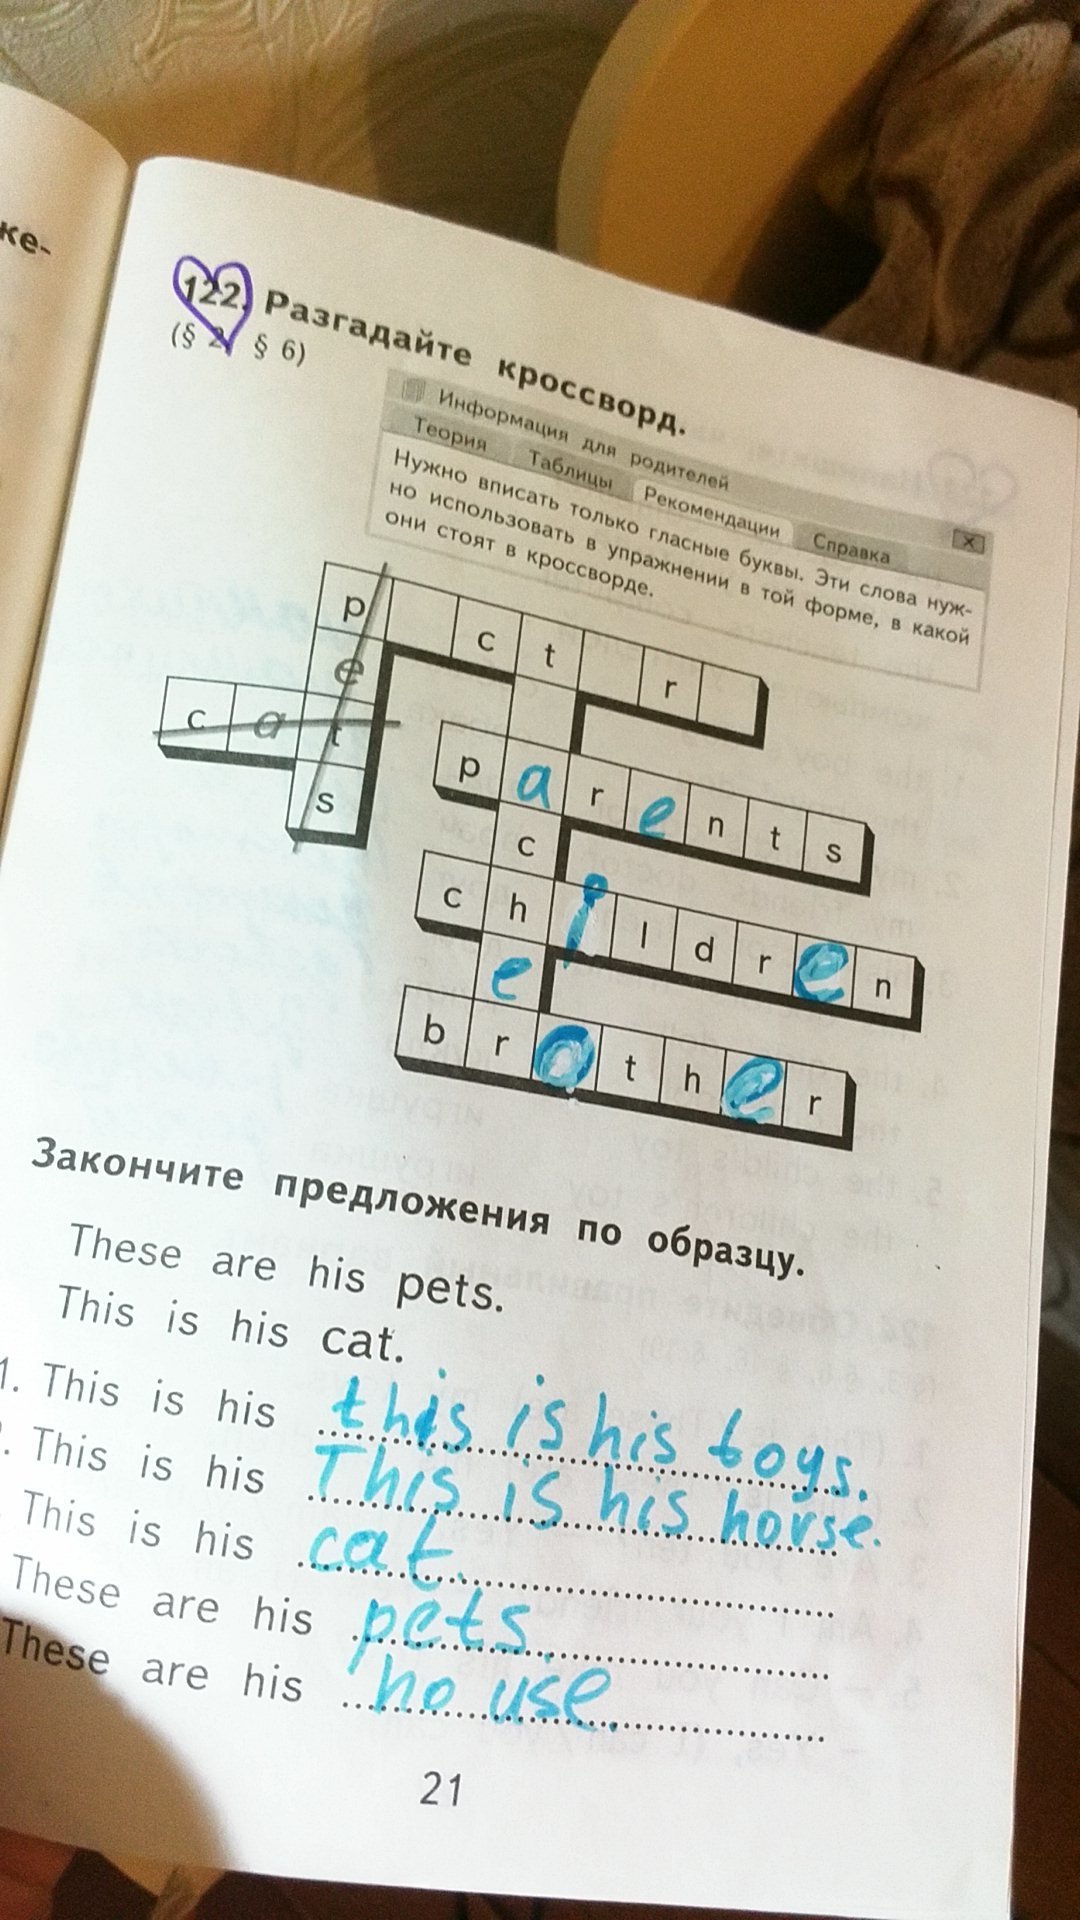 ке-
122. Разгадайте кроссворд.
(§ 2, § 6)
Информация для родителей
Теория Таблицы Рекомендации Справка
Нужно вписать только гласные буквы. Эти слова нуж-
но использовать в упражнении в той форме, в какой
они стоят в кроссворде.
p c t r
e
c a t
s
p a r e n t s
c
c h i l d r e n
e
b r o t h e r
Закончите предложения по образцу.
These are his pets.
This is his cat.
1. This is his this is his toys.
. This is his This is his horse.
This is his cat.
These are his pets.
These are his house.
21